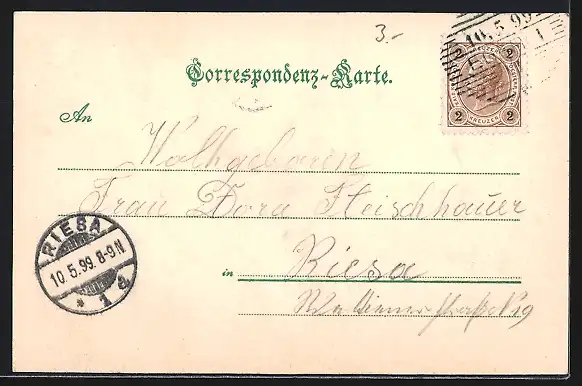 3.-
10.5.99
1
2 2
KREUZER
2 2
Correspondenz-Karte.
An
Wohlgeboren
Frau Dora Fleischhauer
RIESA
10.5.99. 8-9N
* 1 a
in Riesa
19